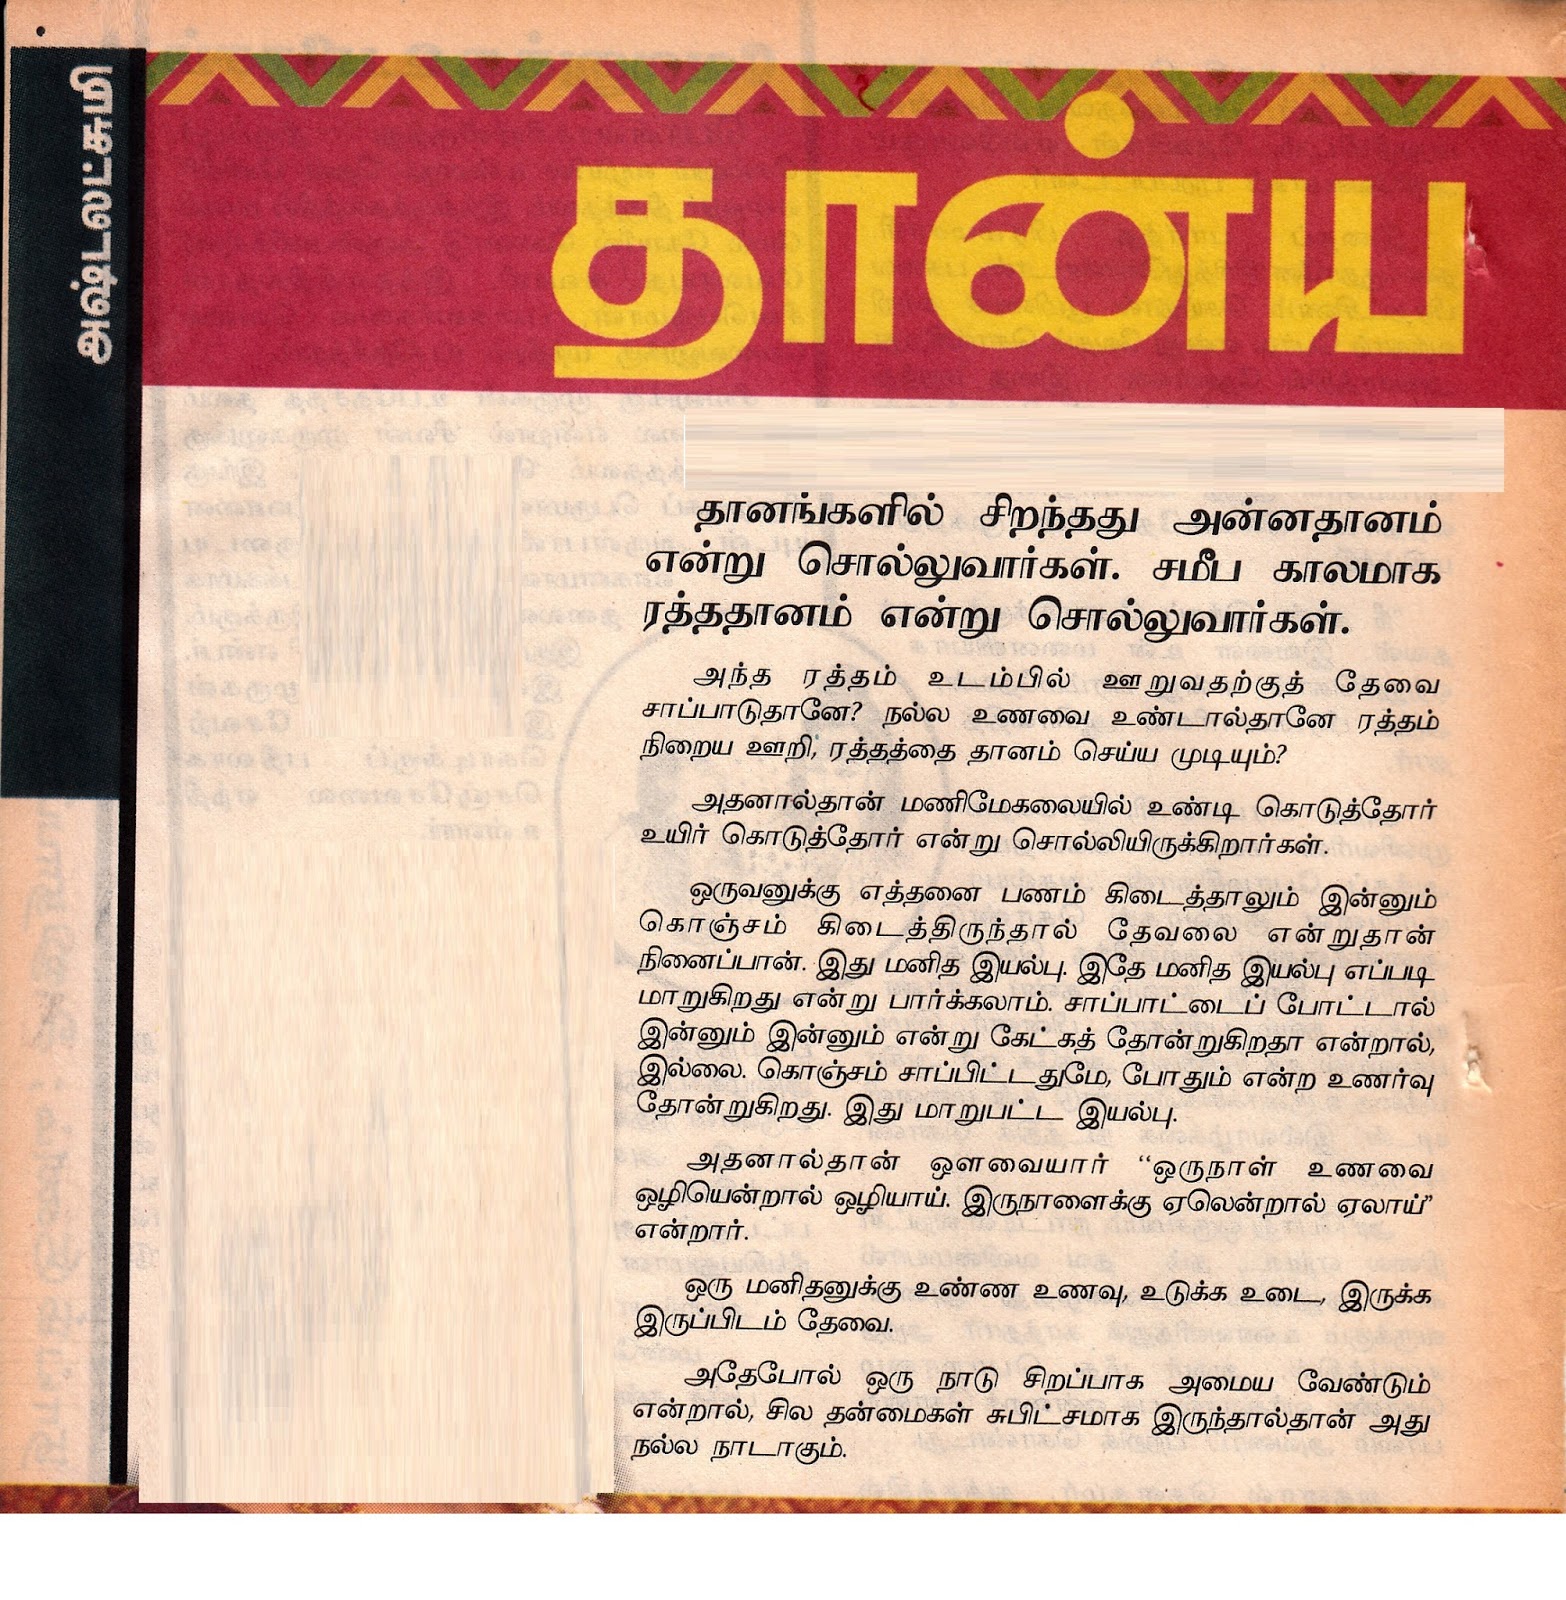 அஷ்டலட்சுமி
தான்ய
தானங்களில் சிறந்தது அன்னதானம்
என்று சொல்லுவார்கள். சமீப காலமாக
ரத்ததானம் என்று சொல்லுவார்கள்.
அந்த ரத்தம் உடம்பில் ஊறுவதற்குத் தேவை
சாப்பாடுதானே? நல்ல உணவை உண்டால்தானே ரத்தம்
நிறைய ஊறி, ரத்தத்தை தானம் செய்ய முடியும்?
அதனால்தான் மணிமேகலையில் உண்டி கொடுத்தோர்
உயிர் கொடுத்தோர் என்று சொல்லியிருக்கிறார்கள்.
ஒருவனுக்கு எத்தனை பணம் கிடைத்தாலும் இன்னும்
கொஞ்சம் கிடைத்திருந்தால் தேவலை என்றுதான்
நினைப்பான். இது மனித இயல்பு. இதே மனித இயல்பு எப்படி
மாறுகிறது என்று பார்க்கலாம். சாப்பாட்டைப் போட்டால்
இன்னும் இன்னும் என்று கேட்கத் தோன்றுகிறதா என்றால்,
இல்லை. கொஞ்சம் சாப்பிட்டதுமே, போதும் என்ற உணர்வு
தோன்றுகிறது. இது மாறுபட்ட இயல்பு.
அதனால்தான் ஔவையார் “ஒருநாள் உணவை
ஒழியென்றால் ஒழியாய். இருநாளைக்கு ஏலென்றால் ஏலாய்”
என்றார்.
ஒரு மனிதனுக்கு உண்ண உணவு, உடுக்க உடை, இருக்க
இருப்பிடம் தேவை.
அதேபோல் ஒரு நாடு சிறப்பாக அமைய வேண்டும்
என்றால், சில தன்மைகள் சுபிட்சமாக இருந்தால்தான் அது
நல்ல நாடாகும்.